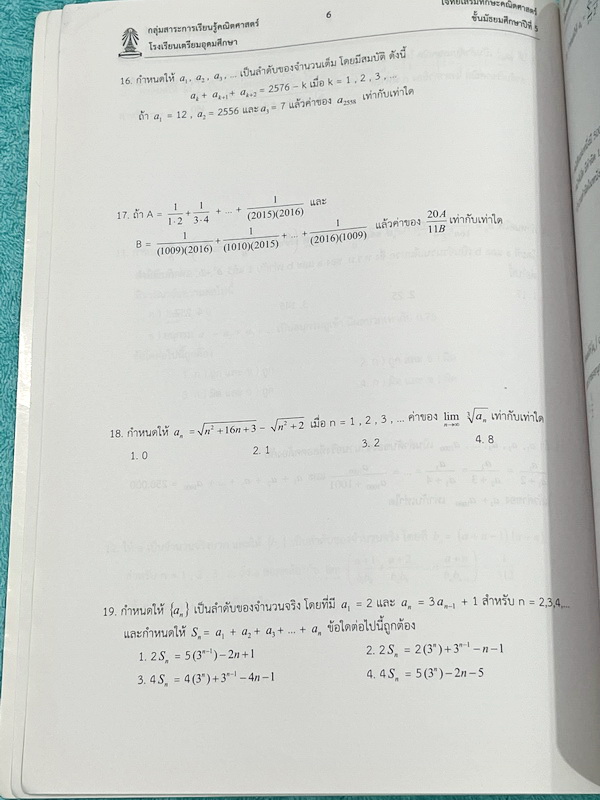 กลุ่มสาระการเรียนรู้คณิตศาสตร์
โรงเรียนเตรียมอุดมศึกษา
6
โจทย์เสริมทักษะคณิตศาสตร์
ชั้นมัธยมศึกษาปีที่ 5
16. กำหนดให้ a₁, a₂, a₃, ... เป็นลำดับของจำนวนเต็ม โดยมีสมบัติ ดังนี้
aₖ + aₖ₊₁ + aₖ₊₂ = 2576 – k เมื่อ k = 1 , 2 , 3 , ...
ถ้า a₁ = 12 , a₂ = 2556 และ a₃ = 7 แล้วค่าของ a₂₅₅₈ เท่ากับเท่าใด
17. ถ้า A = 1/(1·2) + 1/(3·4) + ... + 1/((2015)(2016)) และ
B = 1/((1009)(2016)) + 1/((1010)(2015)) + ... + 1/((2016)(1009)) แล้วค่าของ 20A/11B เท่ากับเท่าใด
18. กำหนดให้ aₙ = √(n² + 16n + 3) – √(n² + 2) เมื่อ n = 1 , 2 , 3 , ... ค่าของ lim n→∞ ∛aₙ เท่ากับเท่าใด
1. 0 2. 1 3. 2 4. 8
19. กำหนดให้ {aₙ} เป็นลำดับของจำนวนจริง โดยที่มี a₁ = 2 และ aₙ = 3aₙ₋₁ + 1 สำหรับ n = 2,3,4,...
และกำหนดให้ Sₙ = a₁ + a₂ + a₃ + ... + aₙ ข้อใดต่อไปนี้ถูกต้อง
1. 2Sₙ = 5(3ⁿ⁻¹) – 2n + 1 2. 2Sₙ = 2(3ⁿ) + 3ⁿ⁻¹ – n – 1
3. 4Sₙ = 4(3ⁿ) + 3ⁿ⁻¹ – 4n – 1 4. 4Sₙ = 5(3ⁿ) – 2n – 5